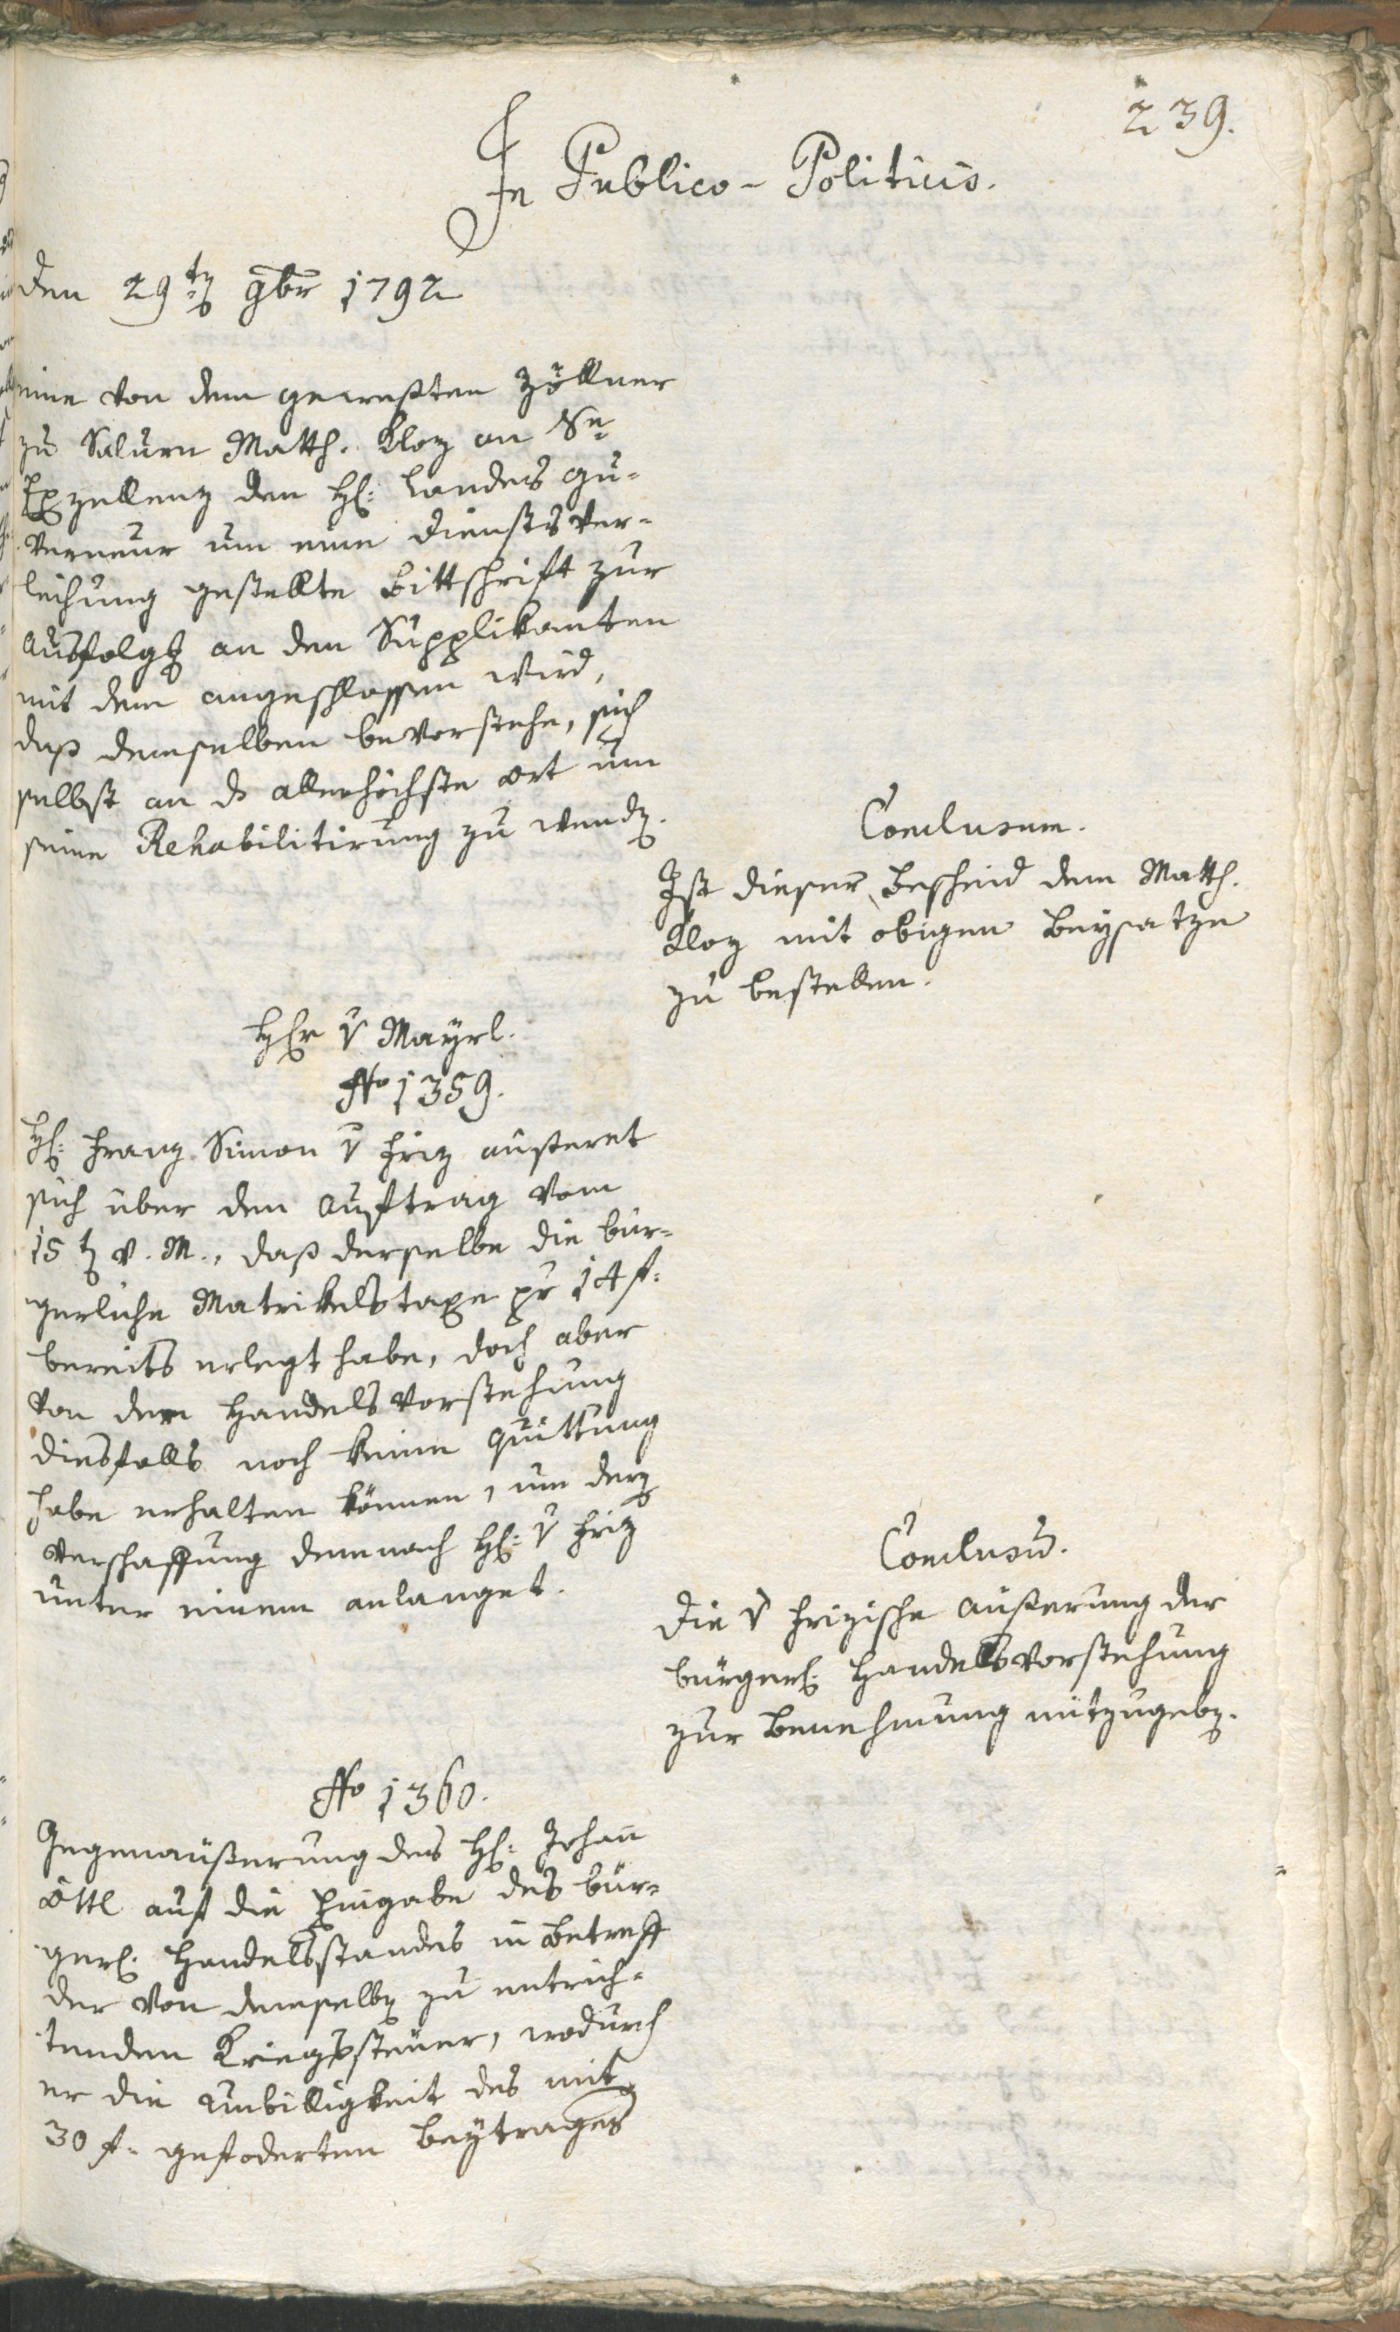 239.
In Publico-Politicis.
den 29ten 9br 1792
eine von dem gewesten Zöllner
zu Salurn Matth. Kloz an Se
Exzellenz den H: Landes Gu-
verneur um eine Dienstsver-
leihung gestellte Bittschrift zur
Ausfolgg an den Supplikanten
mit dem angeschlossen wird,
daß demselben bevorstehe, sich
selbst an d allerhöchste Ort um
seine Rehabilitirung zu wenden.
Conclusum.
Ist dieser Bescheid dem Matth.
Kloz mit obigem Beysatze
zu bestellen.
Herr v Mayrl.
No 1359.
H: Franz Simon v Friz äusseret
sich über den Auftrag vom
15ten v. M., daß derselbe die bür-
gerliche Matrikelstaxe pr 14 f:
bereits erlegt habe, doch aber
von der Handelsvorstehung
diesfalls noch keine Quittung
habe erhalten können, um deren
Verschaffung demnach H: v Friz
unter einem anlanget.
Conclusū.
Die v Frizische Äußerung der
bürgerl. Handelsvorstehung
zur Benehmung mitzugeben.
No 1360.
Gegenäußerung des H: Johann
Öttl auf die Eingabe des bür-
gerl. Handelsstandes in Betreff
der von demselben zu entrich-
tenden Kriegssteuer, wodurch
er die Unbilligkeit des mit
30 f: gefoderten Beytrages